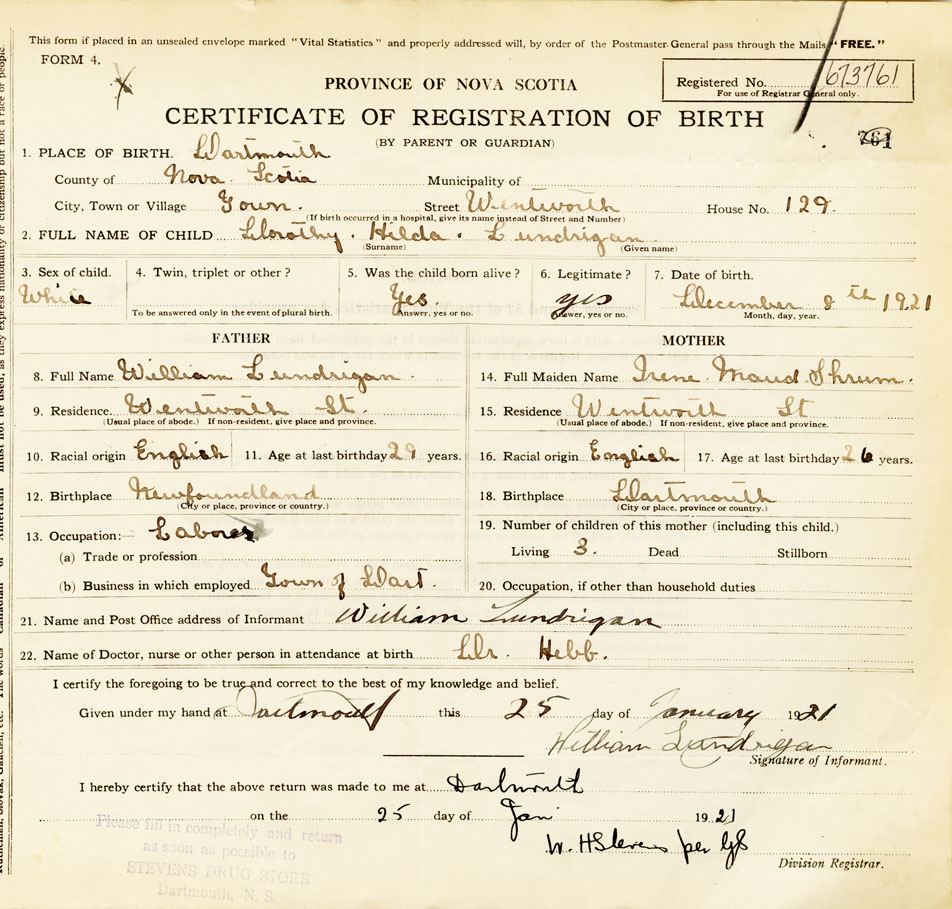 This form if placed in an unsealed envelope marked "Vital Statistics" and properly addressed will, by order of the Postmaster General pass through the Mails "FREE."
FORM 4.
PROVINCE OF NOVA SCOTIA
Registered No. 673761
For use of Registrar General only.
CERTIFICATE OF REGISTRATION OF BIRTH
(BY PARENT OR GUARDIAN)
761
1. PLACE OF BIRTH. Dartmouth
County of Nova Scotia Municipality of
City, Town or Village Town. Street Wentworth House No. 129.
(If birth occurred in a hospital, give its name instead of Street and Number)
2. FULL NAME OF CHILD Dorothy. Hilda. Lundrigan
(Surname) (Given name)
3. Sex of child. 4. Twin, triplet or other? 5. Was the child born alive? 6. Legitimate? 7. Date of birth.
White Yes. yes December 8th 1921
To be answered only in the event of plural birth. Answer, yes or no. Answer, yes or no. Month, day, year.
FATHER MOTHER
8. Full Name William Lundrigan. 14. Full Maiden Name Irene Maud Shrum.
9. Residence. Wentworth St. 15. Residence Wentworth St
(Usual place of abode.) If non-resident, give place and province. (Usual place of abode.) If non-resident, give place and province.
10. Racial origin English 11. Age at last birthday 29 years. 16. Racial origin English 17. Age at last birthday 26 years.
12. Birthplace Newfoundland 18. Birthplace Dartmouth
(City or place, province or country.) (City or place, province or country.)
13. Occupation:— Laborer 19. Number of children of this mother (including this child.)
(a) Trade or profession Living 3. Dead Stillborn
(b) Business in which employed Town of Dart. 20. Occupation, if other than household duties
21. Name and Post Office address of Informant William Lundrigan
22. Name of Doctor, nurse or other person in attendance at birth Dr. Hebb.
I certify the foregoing to be true and correct to the best of my knowledge and belief.
Given under my hand at Dartmouth this 25 day of January 1921
William Lundrigan
Signature of Informant.
I hereby certify that the above return was made to me at Dartmouth
on the 25 day of Jan 1921
W. H Stevens per
Division Registrar.
Please fill in completely and return
as soon as possible to
STEVENS DRUG STORE
Dartmouth, N. S.